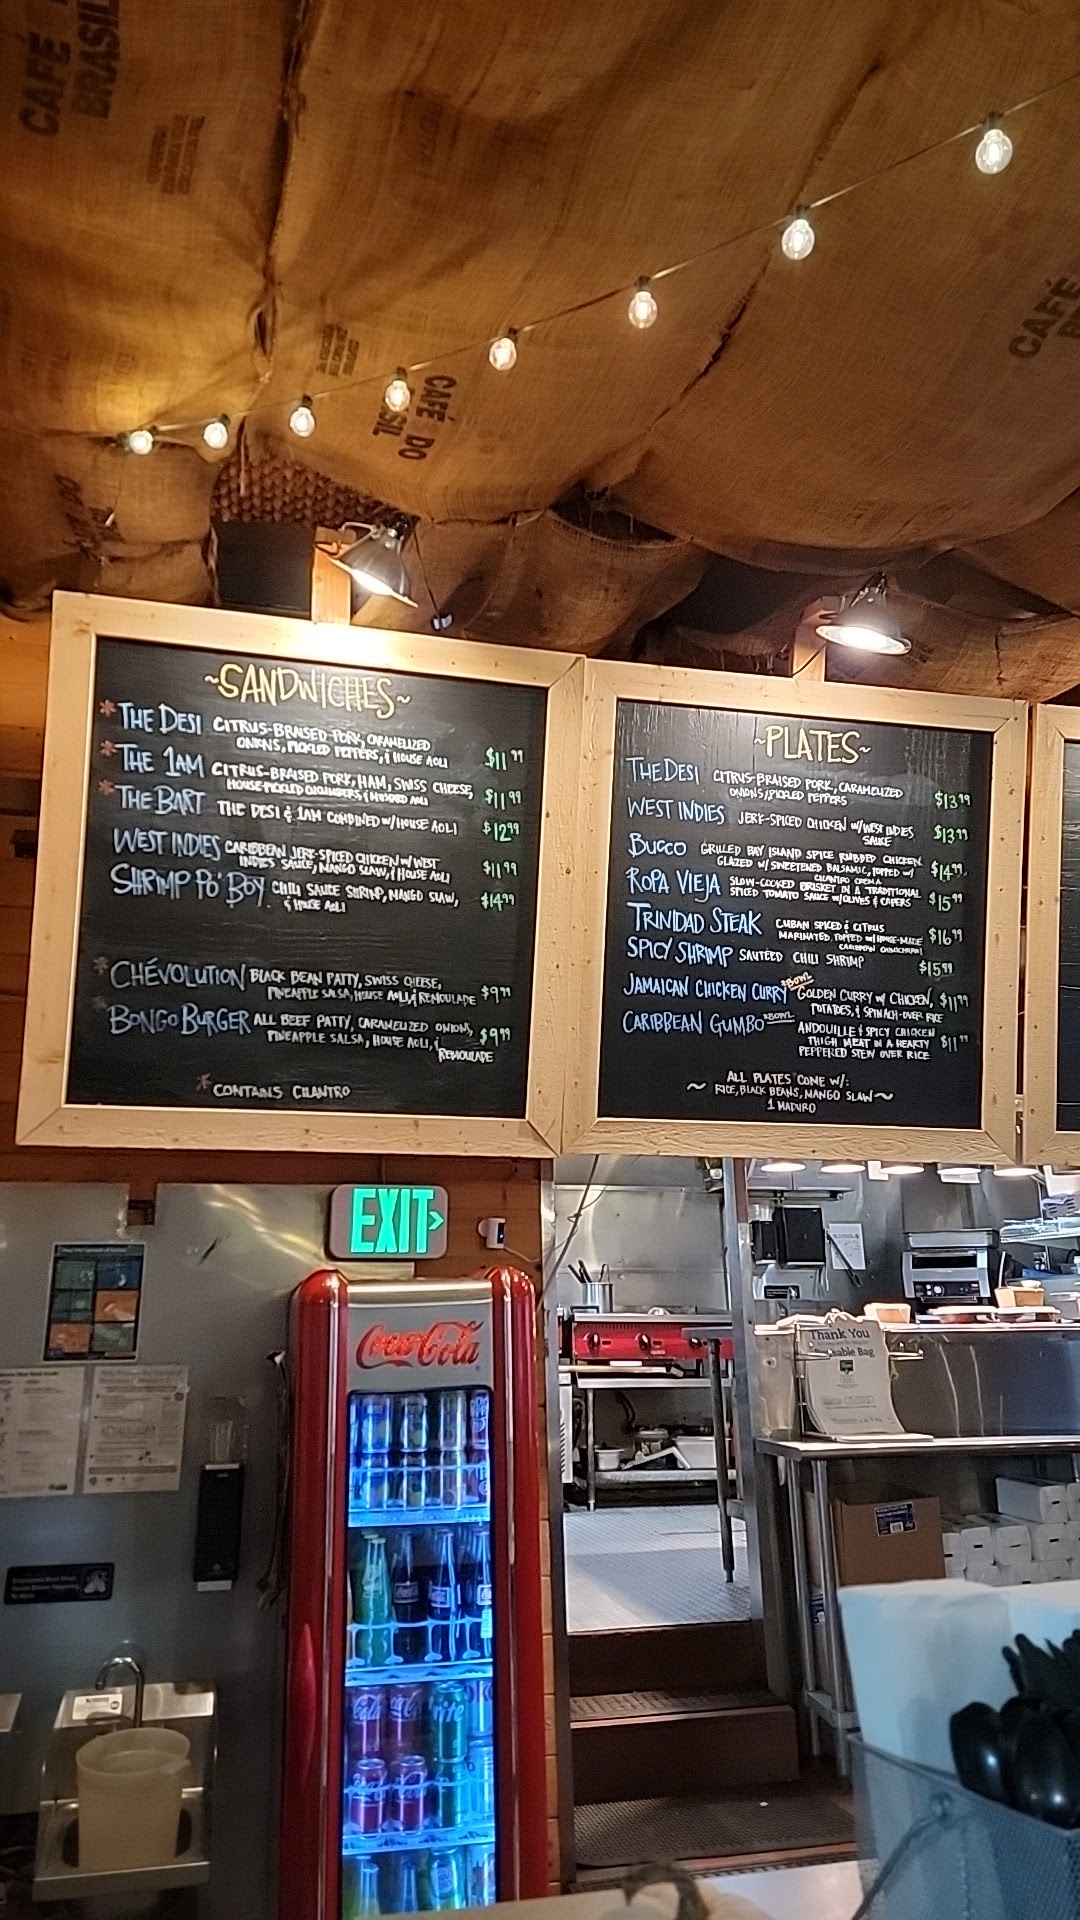 CAFÉ
BRASIL
CAFÉ
CAFÉ DO
~SANDWICHES~
*THE DESI CITRUS-BRAISED PORK, CARAMELIZED
ONIONS, PICKLED PEPPERS, & HOUSE AOLI $11.99
*THE 1AM CITRUS-BRAISED PORK, HAM, SWISS CHEESE,
HOUSE-PICKLED CUCUMBERS & MUSTARD AOLI $11.99
*THE BART THE DESI & 1AM COMBINED W/HOUSE AOLI $12.99
WEST INDIES CARIBBEAN JERK-SPICED CHICKEN W/ WEST
INDIES SAUCE, MANGO SLAW, & HOUSE AOLI $11.99
SHRIMP PO' BOY CHILI SAUCE SHRIMP, MANGO SLAW,
& HOUSE AOLI $14.99
*CHÉVOLUTION BLACK BEAN PATTY, SWISS CHEESE,
PINEAPPLE SALSA, HOUSE AOLI, & REMOULADE $9.99
*BONGO BURGER ALL BEEF PATTY, CARAMELIZED ONIONS,
PINEAPPLE SALSA, HOUSE AOLI, & $9.99
REMOULADE
*CONTAINS CILANTRO
~PLATES~
THE DESI CITRUS-BRAISED PORK, CARAMELIZED
ONIONS, PICKLED PEPPERS $13.99
WEST INDIES JERK-SPICED CHICKEN W/WEST INDIES
SAUCE $13.99
BUCCO GRILLED BAY ISLAND SPICE RUBBED CHICKEN
GLAZED W/ SWEETENED BALSAMIC, TOPPED W/
CILANTRO CREMA $14.99
ROPA VIEJA SLOW-COOKED BRISKET IN A TRADITIONAL
SPICED TOMATO SAUCE W/OLIVES & CAPERS $15.99
TRINIDAD STEAK CUBAN SPICED & CITRUS
MARINATED. TOPPED W/HOUSE-MADE
CARIBBEAN CHIMICHURRI $16.99
SPICY SHRIMP SAUTÉED CHILI SHRIMP $15.99
JAMAICAN CHICKEN CURRY *BOWL GOLDEN CURRY W/ CHICKEN,
POTATOES, & SPINACH-OVER RICE $11.99
CARIBBEAN GUMBO *BOWL ANDOUILLE & SPICY CHICKEN
THIGH MEAT IN A HEARTY
PEPPERED STEW OVER RICE $11.99
ALL PLATES COME W/:
~ RICE, BLACK BEANS, MANGO SLAW ~
1 MADURO
EXIT
Coca-Cola
Thank You
Bag